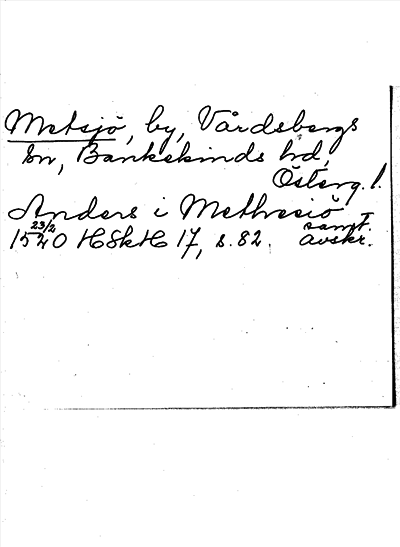 Metsjö, by, Vårdsbergs
sn, Bankekinds hd,
Österg. l.
Anders i Methesiö
1540 23/2 HSkH 17, s. 82. samt. avskr.